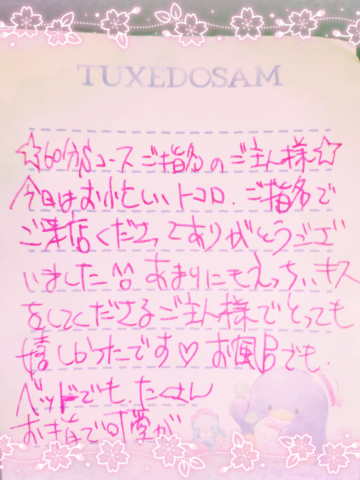 TUXEDOSAM
☆60分Sコースご指名のご主人様☆
今日はお忙しいトコロ、ご指名で
ご来店くださってありがとうござ
いました^^ あまりにもえっちぃキス
をしてくださるご主人様でとっても
嬉しかったです♡お風呂でも、
ベッドでも、たくさん
お指で可愛が